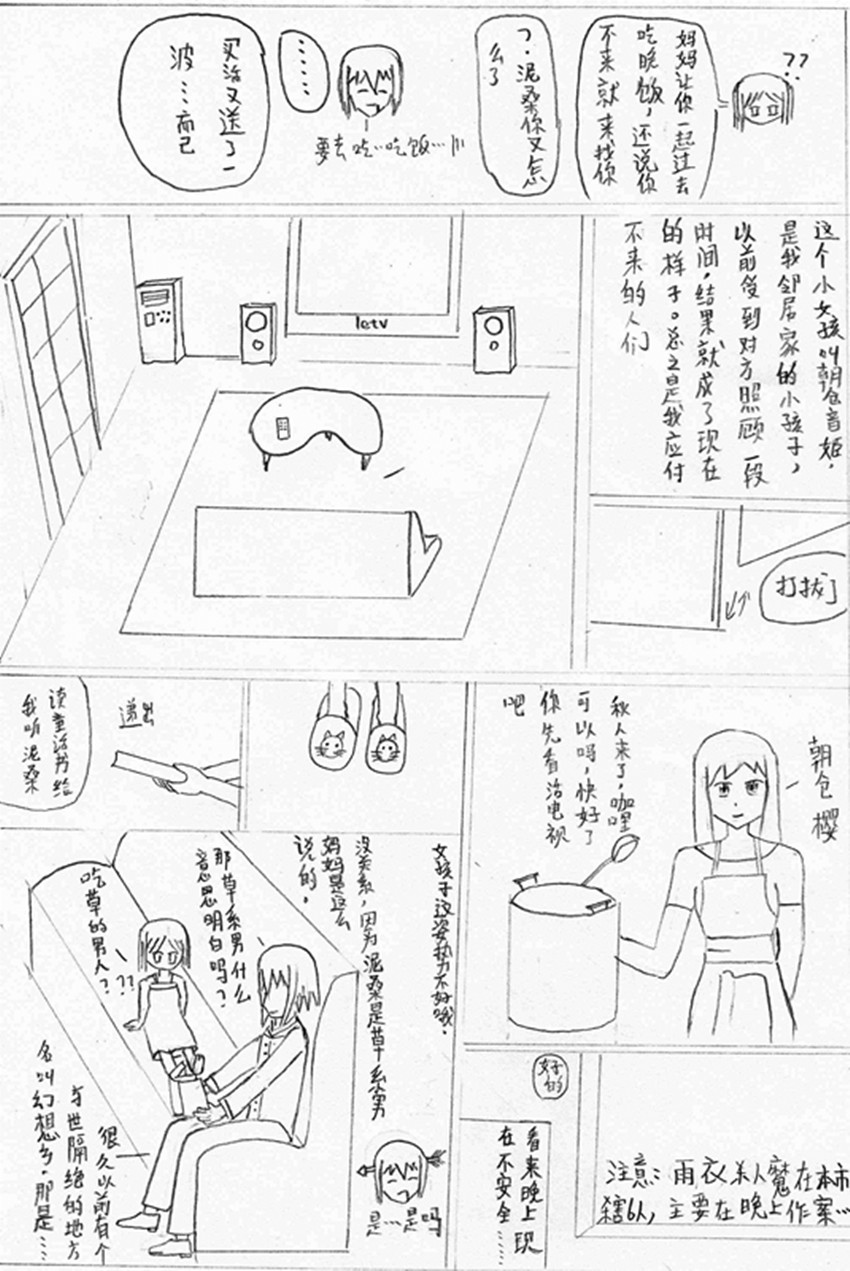 ??
妈妈让你一起过去
吃晚饭，还说你
不来就来找你
?.泥桑你又怎
么了
要去吃…吃饭…
……
买活又送了一
波…而已
这个小女孩叫朝仓音姬，
是我邻居家的小孩子，
以前受到对方照顾一段
时间，结果就成了现在
的样子。总之是我应付
不来的人们
letv
打拔了
朝仓樱
秋人来了，咖哩
可以吗，快好了
你先看活电视
吧
递出
读童活书给
我听泥桑
女孩子这姿势力不好哦.
没关系，因为泥桑是草系男
妈妈是这么
说的.
那草系男什么
意思明白吗？
吃草的
男人？
??
是…是吗
很久以前有个
与世隔绝的地方
名叫幻想乡.那是……
好的
注意：雨衣杀人魔在本市
殺6人,主要在晚上作案…
看来晚上现
在不安全……